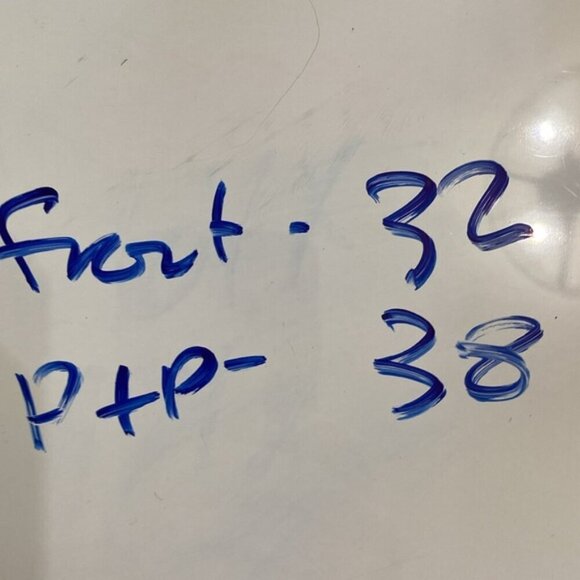 front - 32
PtP - 38